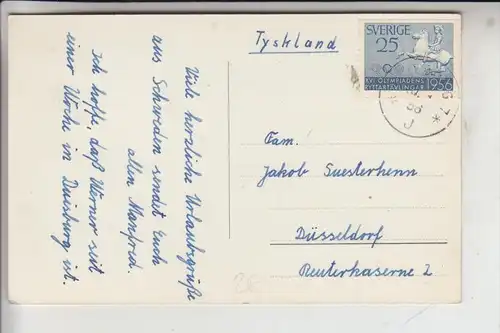 Viele herzliche Urlaubsgrüße
aus Schweden sendet Euch
allen Manfred.
Ich hoffe, daß Werner seit
einer Woche in Duisburg ist.
Tyskland
SVERIGE
25
XVI OLYMPIADENS
RYTTARTÄVLINGAR
1956
Fam.
Jakob Suesterhenn
Düsseldorf
Reuterkaserne 2